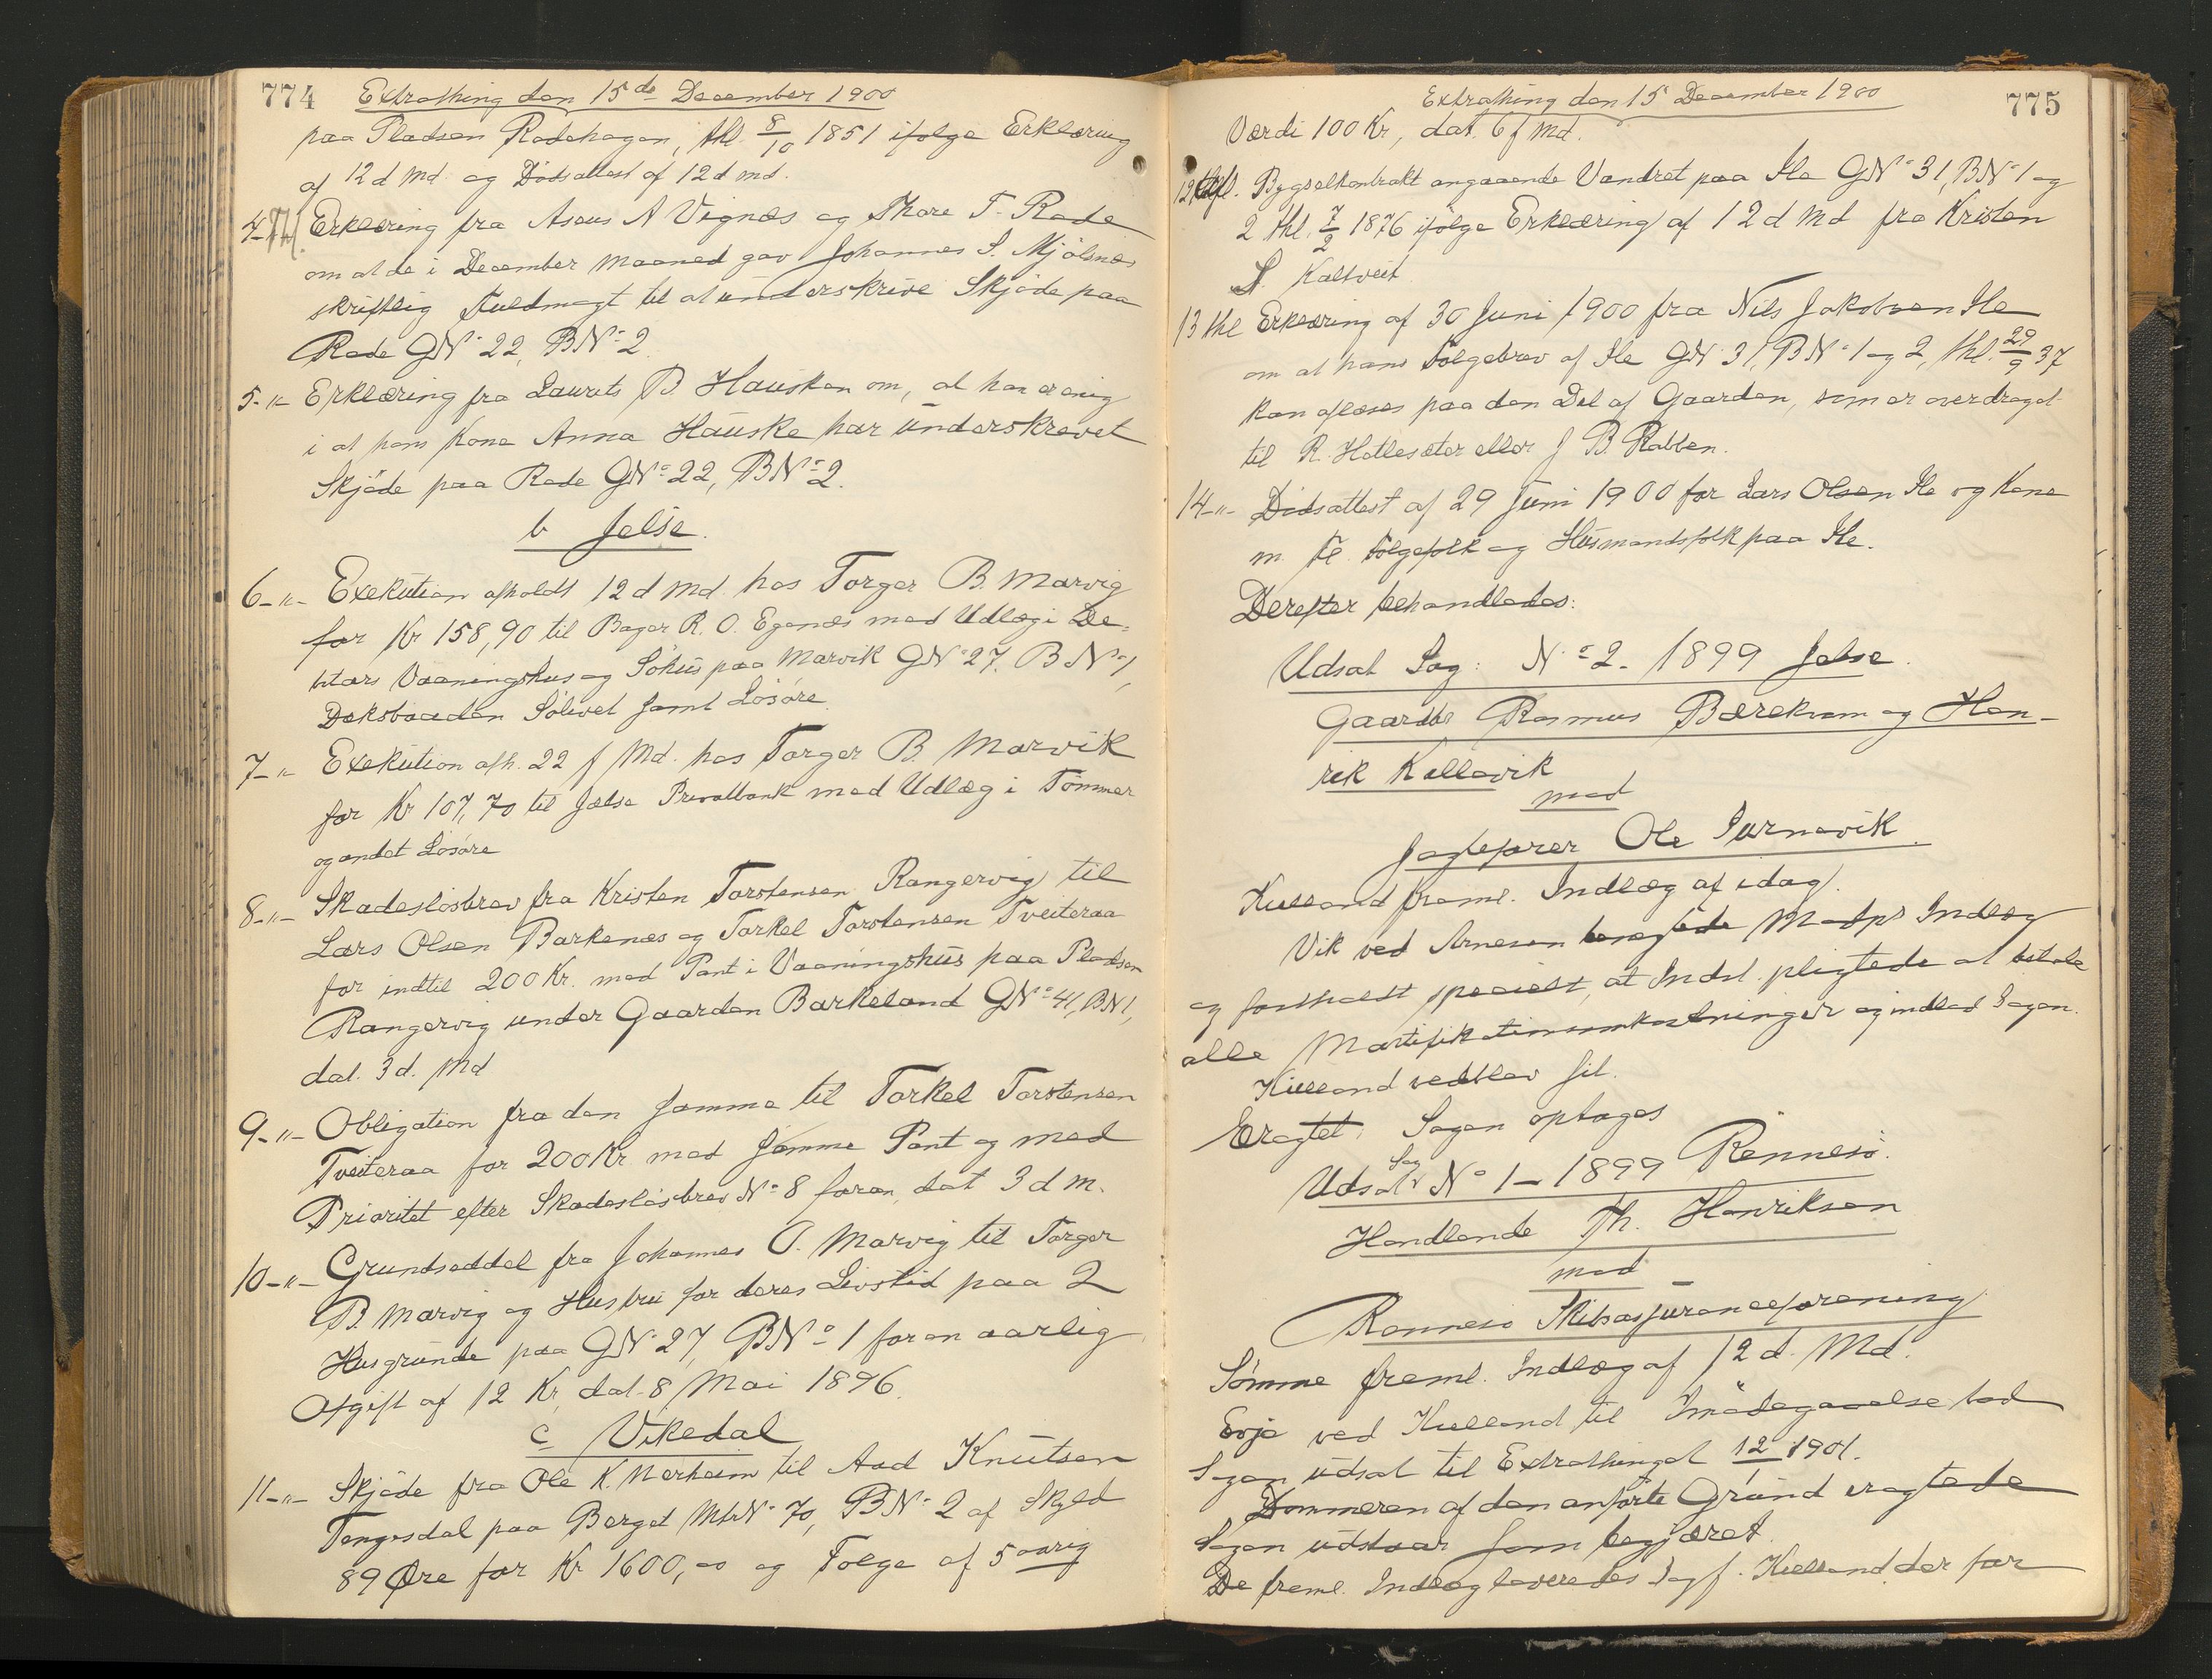 774 Extrathing den 15de December 1900
paa Pladsen Radehagen, thl. 8/10 1851 ifølge Erklæring
af 12 d Md. og Dødsattest af 12 d md.
4- Thl. Erklæring fra Aseus A Vignæs og Thore T. Rade
om at de i December Maaned gav Johannes S. Mjølsnæs
skriftlig Fuldmagt til at underskrive Skjøde paa
Rade GN° 22, BN° 2.
5-"- Erklæring fra Laurits B. Hausken om, at han er enig
i at hans Kone Anna Hauske har underskrevet
Skjøde paa Rade GN° 22, BN° 2.
b Jelse.
6-"- Exekution afholdt 12 d Md. hos Torger B. Marvig
for Kr 158,90 til Bager R. O. Egenæs med Udlæg i De-
bitors Vaaningshus og Søhus paa Marvik GN° 27, BN° 1,
Dæksbaaden Sølivet samt Løsøre.
7-"- Exekution afh. 22 f Md. hos Torger B. Marvik
for Kr 107,70 til Jælse Privatbank med Udlæg i Tømmer
og andet Løsøre
8-"- Skadesløsbrev fra Kristen Torstensen Rangervig til
Lars Olsen Barkenæs og Torkel Torstensen Tveiteraa
for indtil 200 Kr. med Pant i Vaaningshus paa Pladsen
Rangervig under Gaarden Barkeland GN° 41, BN 1,
dat. 3 d. Md
9-"- Obligation fra den samme til Torkel Torstensen
Tveiteraa for 200 Kr. med samme Pant og med
Prioritet efter Skadesløsbrev N° 8 foran, dat 3 d m.
10-"- Grundseddel fra Johannes O. Marvig til Torger
B. Marvig og Hustru for deres Livstid paa 2
Husgrunde paa GN° 27, BN° 1 for en aarlig
Afgift af 12 Kr, dat. 8 Mai 1896.
c Vikedal
11-"- Skjøde fra Ole K. Nerheim til Aad Knutsen
Tengesdal paa Berget MtrN° 70, BN° 2 af Skyld
89 Øre for Kr 1600,00 og Følge af 5 aarig
Extrathing den 15 December 1900 775
Værdi 100 Kr, dat. 6 f Md.
12 Bygselkontrakt angaaende Vandret paa Ile GN° 31, BN° 1 og
2 thl. 7/2 1876 ifølge Erklæring af 12 d Md fra Kristen
S. Kaltveit
13 thl Erklæring af 30 Juni 1900 fra Nils Jakobsen Ile
om at hans Følgebrev af Ile GN 31, BN° 1 og 2, thl. 29/9 37
kan aflæses paa den Del af Gaarden, som er overdraget
til R. Hetlesæter eller J B. Rabben.
14-"- Dødsattest af 29 Juni 1900 for Lars Olsen Ile og Kone
m. fl. Følgefolk og Husmandsfolk paa Ile.
Derefter behandledes:
Udsat Sag: N° 2 - 1899 Jelse.
Gaardbr Rasmus Bærekvam og Hen-
rik Kallevik
mod
Jagtefører Ole Surnevik.
Kielland freml. Indlæg af idag.
Vik ved Arnesen Modps Indlæg
og fastholdt specielt, at Indst. pligtede at betale
alle Mortifikationsomkostninger og indlod Sagen.
Kielland vedblev sit.
Eragtet: Sagen optages
Udsat Sag N° 1 - 1899 Rennesø.
Handlende Th. Henriksen
mod
Rennesø Skibsassuranceforening
Sømme freml. Indlæg af 12 d. Md.
Evje ved Kielland til Imødegaaelse bad
Sagen udsat til Extrathinget 12/1 1901.
Dommeren af den anførte Grund eragtede
Sagen udstaar som begjæret.
De freml. Indlæg leveredes Sagf. Kielland der for